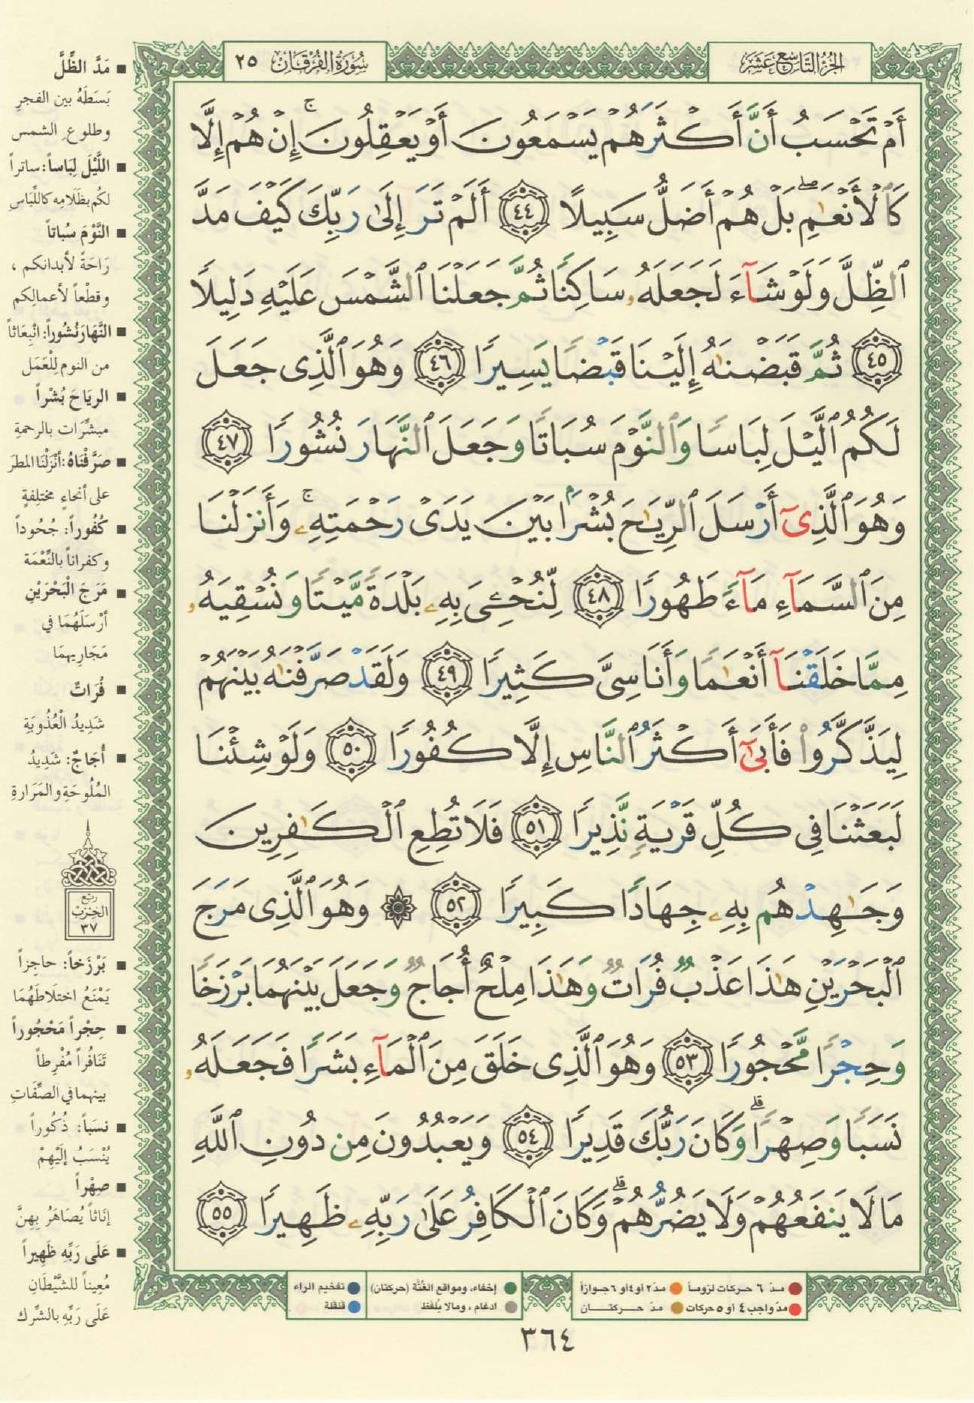 الجزء التاسع عشر
سورة الفرقان ٢٥
أَمْ تَحْسَبُ أَنَّ أَكْثَرَهُمْ يَسْمَعُونَ أَوْ يَعْقِلُونَ ۚ إِنْ هُمْ إِلَّا
كَٱلْأَنْعَٰمِ ۖ بَلْ هُمْ أَضَلُّ سَبِيلًا ٤٤ أَلَمْ تَرَ إِلَىٰ رَبِّكَ كَيْفَ مَدَّ
ٱلظِّلَّ وَلَوْ شَآءَ لَجَعَلَهُۥ سَاكِنًا ثُمَّ جَعَلْنَا ٱلشَّمْسَ عَلَيْهِ دَلِيلًا
٤٥ ثُمَّ قَبَضْنَٰهُ إِلَيْنَا قَبْضًا يَسِيرًا ٤٦ وَهُوَ ٱلَّذِى جَعَلَ
لَكُمُ ٱلَّيْلَ لِبَاسًا وَٱلنَّوْمَ سُبَاتًا وَجَعَلَ ٱلنَّهَارَ نُشُورًا ٤٧
وَهُوَ ٱلَّذِىٓ أَرْسَلَ ٱلرِّيَٰحَ بُشْرًۢا بَيْنَ يَدَىْ رَحْمَتِهِۦ ۚ وَأَنزَلْنَا
مِنَ ٱلسَّمَآءِ مَآءً طَهُورًا ٤٨ لِّنُحْـِۧىَ بِهِۦ بَلْدَةً مَّيْتًا وَنُسْقِيَهُۥ
مِمَّا خَلَقْنَآ أَنْعَٰمًا وَأَنَاسِىَّ كَثِيرًا ٤٩ وَلَقَدْ صَرَّفْنَٰهُ بَيْنَهُمْ
لِيَذَّكَّرُوا۟ فَأَبَىٰٓ أَكْثَرُ ٱلنَّاسِ إِلَّا كُفُورًا ٥٠ وَلَوْ شِئْنَا
لَبَعَثْنَا فِى كُلِّ قَرْيَةٍ نَّذِيرًا ٥١ فَلَا تُطِعِ ٱلْكَٰفِرِينَ
وَجَٰهِدْهُم بِهِۦ جِهَادًا كَبِيرًا ٥٢ ۞ وَهُوَ ٱلَّذِى مَرَجَ
ٱلْبَحْرَيْنِ هَٰذَا عَذْبٌ فُرَاتٌ وَهَٰذَا مِلْحٌ أُجَاجٌ وَجَعَلَ بَيْنَهُمَا بَرْزَخًا
وَحِجْرًا مَّحْجُورًا ٥٣ وَهُوَ ٱلَّذِى خَلَقَ مِنَ ٱلْمَآءِ بَشَرًا فَجَعَلَهُۥ
نَسَبًا وَصِهْرًا ۗ وَكَانَ رَبُّكَ قَدِيرًا ٥٤ وَيَعْبُدُونَ مِن دُونِ ٱللَّهِ
مَا لَا يَنفَعُهُمْ وَلَا يَضُرُّهُمْ ۗ وَكَانَ ٱلْكَافِرُ عَلَىٰ رَبِّهِۦ ظَهِيرًا ٥٥
■ مَدَّ الظِّلَّ
بَسَطَهُ بين الفجرِ
وطلوعِ الشمس
■ اللَّيْلَ لِبَاساً: ساتراً
لكم بظلامِه كاللِّباسِ
■ النَّوْمَ سُبَاتاً
رَاحَةً لأبدانكم ،
وقطْعاً لأعمالِكم
■ النَّهَارَ نُشُوراً: انْبِعَاثاً
من النوم لِلْعَمَل
■ الرِّيَاحَ بُشْراً
مبشِّرَات بالرحمةِ
■ صَرَّفْنَاهُ: أنْزَلْنَا المطَر
على أنحاءٍ مختلِفةٍ
■ كُفُوراً: جُحُوداً
وكفراناً بالنِّعْمَة
■ مَرَجَ الْبَحْرَيْنِ
أَرْسَلَهُمَا في
مَجَارِيهِمَا
■ فُرَاتٌ
شَدِيدُ الْعُذُوبَةِ
■ أُجَاجٌ: شَدِيدُ
المُلُوحَةِ والمَرَارَةِ
ربع
الحزب
٣٧
■ بَرْزَخاً: حاجِزاً
يَمْنَعُ اختلاطَهُمَا
■ حِجْراً مَحْجُوراً
تَنَافُراً مُفْرِطاً
بينهما في الصِّفَاتِ
■ نَسَباً: ذُكُوراً
يُنْسَبُ إلَيْهِمْ
■ صِهْراً
إنَاثاً يُصَاهَرُ بِهِنَّ
■ عَلَى رَبِّهِ ظَهِيراً
مُعِيناً للشَّيْطَانِ
عَلَى رَبِّهِ بالشِّرك
مدّ ٦ حركات لزوماً مدّ ٢ او ٤ او ٦ جوازاً
مدّ واجب ٤ او ٥ حركات مدّ حركتان
إخفاء، ومواقع الغُنَّة (حركتان)
ادغام ، ومالا يُلفَظ
تفخيم الراء
قلقلة
٣٦٤